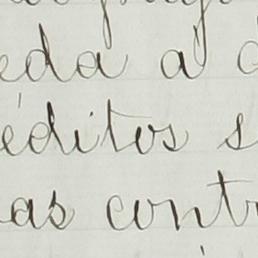 eda a
éditos s
as contr